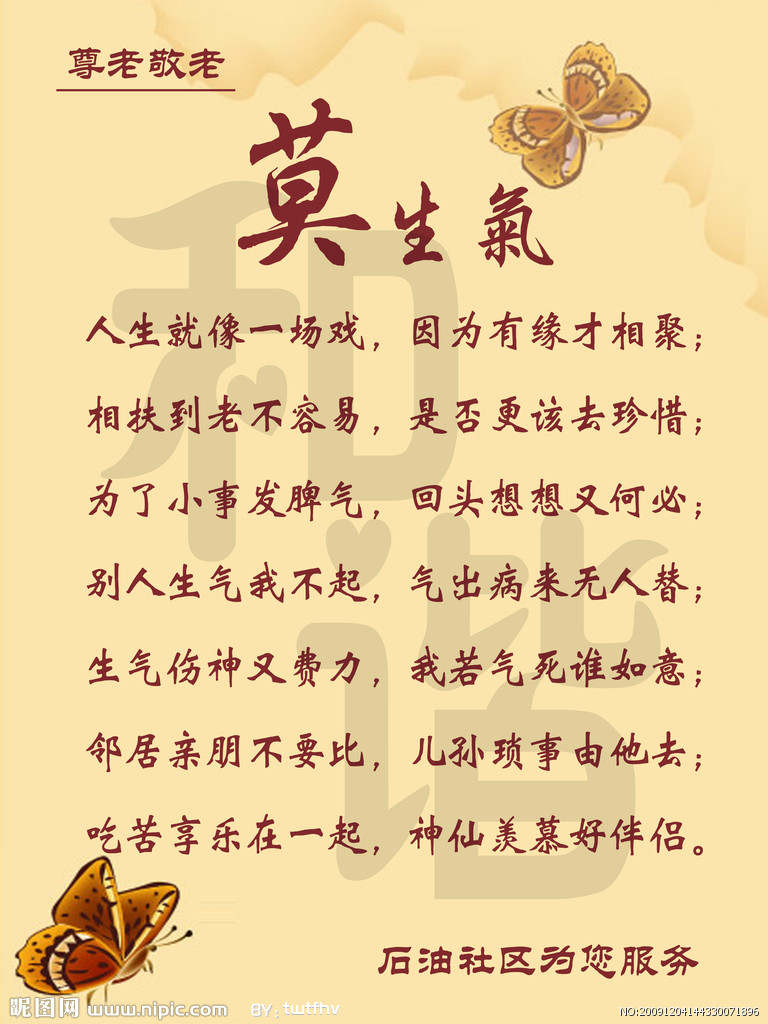 尊老敬老
莫生氣
人生就像一场戏，因为有缘才相聚；
相扶到老不容易，是否更该去珍惜；
为了小事发脾气，回头想想又何必；
别人生气我不起，气出病来无人替；
生气伤神又费力，我若气死谁如意；
邻居亲朋不要比，儿孙琐事由他去；
吃苦享乐在一起，神仙羡慕好伴侣。
和谐
石油社区为您服务
昵图网 www.nipic.com BY：twtfhv
NO:20091204144330071896